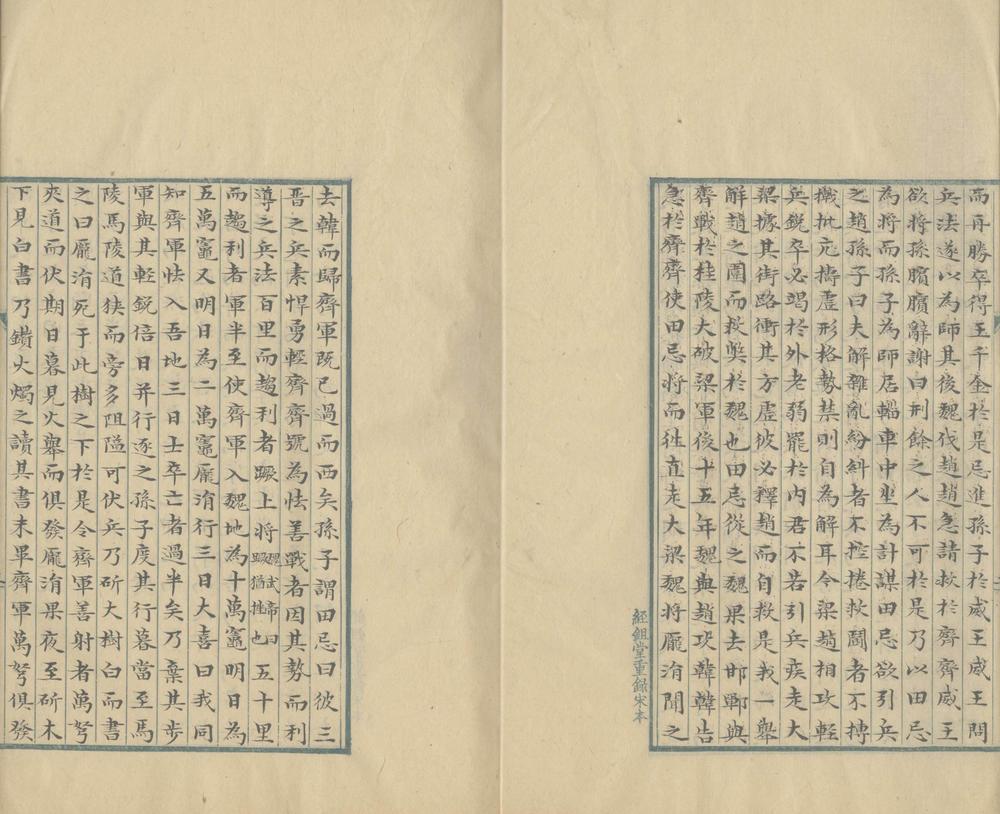 而再勝卒得王千金於是忌進孫子於威王威王問
兵法遂以為師其後魏伐趙趙急請救於齊齊威王
欲將孫臏臏辭謝曰刑餘之人不可於是乃以田忌
為將而孫子為師居輜車中坐為計謀田忌欲引兵
之趙孫子曰夫解雜亂紛糾者不控捲救鬭者不摶
撠批亢擣虛形格勢禁則自為解耳今梁趙相攻輕
兵銳卒必竭於外老弱罷於內君不若引兵疾走大
梁據其街路衝其方虛彼必釋趙而自救是我一舉
解趙之圍而救獘於魏也田忌從之魏果去邯鄲與
齊戰於桂陵大破梁軍後十五年魏與趙攻韓韓告
急於齊齊使田忌將而往直走大梁魏將龐涓聞之
經鉏堂重錄宋本
去韓而歸齊軍既已過而西矣孫子謂田忌曰彼三
晉之兵素悍勇輕齊齊號為怯善戰者因其勢而利
導之兵法百里而趨利者蹶上將魏武帝曰蹶猶挫也五十里
而趨利者軍半至使齊軍入魏地為十萬竈明日為
五萬竈又明日為二萬竈龐涓行三日大喜曰我同
知齊軍怯入吾地三日士卒亡者過半矣乃棄其步
軍與其輕銳倍日并行逐之孫子度其行暮當至馬
陵馬陵道狹而旁多阻隘可伏兵乃斫大樹白而書
之曰龐涓死于此樹之下於是令齊軍善射者萬弩
夾道而伏期日暮見火舉而俱發龐涓果夜至斫木
下見白書乃鑽火燭之讀其書未畢齊軍萬弩俱發